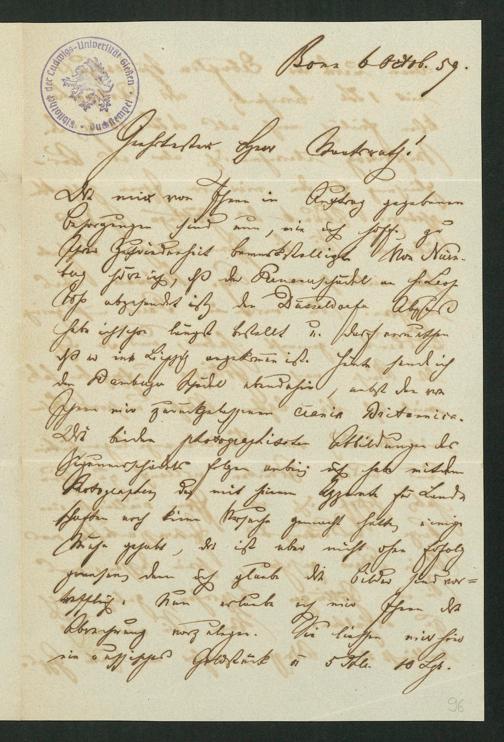 Bibliothek der Ludwigs-Universität Gießen
Duckstempel
Bonn 6 Octob. 59.
Geehrtester Herr Staatsrath!
Die mir von Ihnen in Auftrag gegebenen
Besorgungen sind nun, wie ich hoffe, zu
Ihrer Zufriedenheit bewerkstelligt. Von Nürn-
berg höre ich, daß der Schädel an H.
abgesendet ist, den Düsseldorfer Abguß
habe ich schon längst bestellt u. darf vermuthen
daß er in Leipzig angekommen ist. Heute sende ich
den Bamberger Schädel ebendahin, nebst den von
Ihnen mir zurückgelassenen Crania Britannica.
Die beiden photographischen Abbildungen des
Schädels folgen anbei, ich habe mit dem
Photographen, der mit seinem Apparate für Land-
schaften noch keine Versuche gemacht hatte, einige
Mühe gehabt, die ist aber nicht ohne Erfolg
gewesen, denn ich glaube die Bilder sind vor-
trefflich. Nun erlaube ich mir Ihnen die
Abrechnung vorzulegen. Sie ließen mir hier
ein russisches Goldstück u 5 Thlr. 10 Sgr.
96